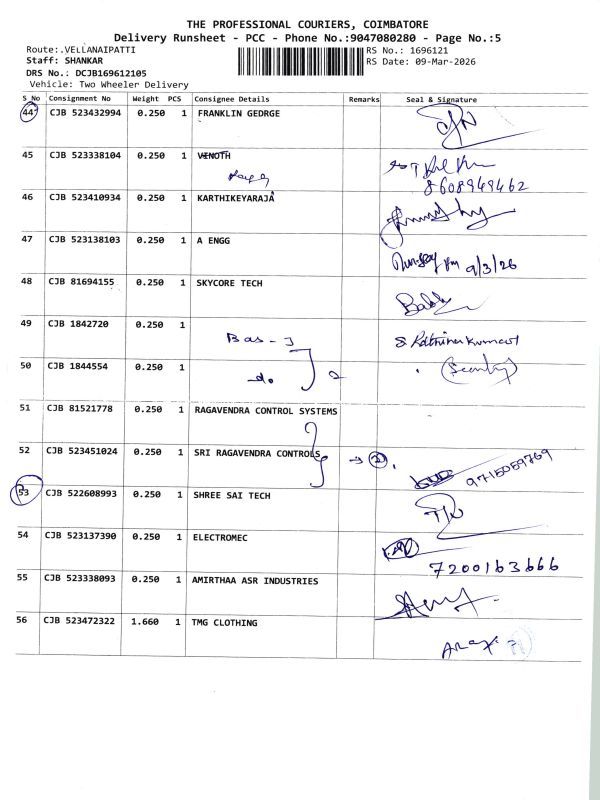 THE PROFESSIONAL COURIERS, COIMBATORE
Delivery Runsheet - PCC - Phone No.:9047080280 - Page No.:5
Route:.VELLANAIPATTI
RS No.: 1696121
Staff: SHANKAR
RS Date: 09-Mar-2026
DRS No.: DCJB169612105
Vehicle: Two Wheeler Delivery
S No Consignment No Weight PCS Consignee Details Remarks Seal & Signature
44 CJB 523432994 0.250 1 FRANKLIN GEORGE
45 CJB 523338104 0.250 1 VENOTH
8608949462
46 CJB 523410934 0.250 1 KARTHIKEYARAJA
47 CJB 523138103 0.250 1 A ENGG
9/3/26
48 CJB 81694155 0.250 1 SKYCORE TECH
49 CJB 1842720 0.250 1
Bas -
50 CJB 1844554 0.250 1
do 2
51 CJB 81521778 0.250 1 RAGAVENDRA CONTROL SYSTEMS
52 CJB 523451024 0.250 1 SRI RAGAVENDRA CONTROLS
→ 2 9715059769
53 CJB 522608993 0.250 1 SHREE SAI TECH
54 CJB 523137390 0.250 1 ELECTROMEC
7200163666
55 CJB 523338093 0.250 1 AMIRTHAA ASR INDUSTRIES
56 CJB 523472322 1.660 1 TMG CLOTHING